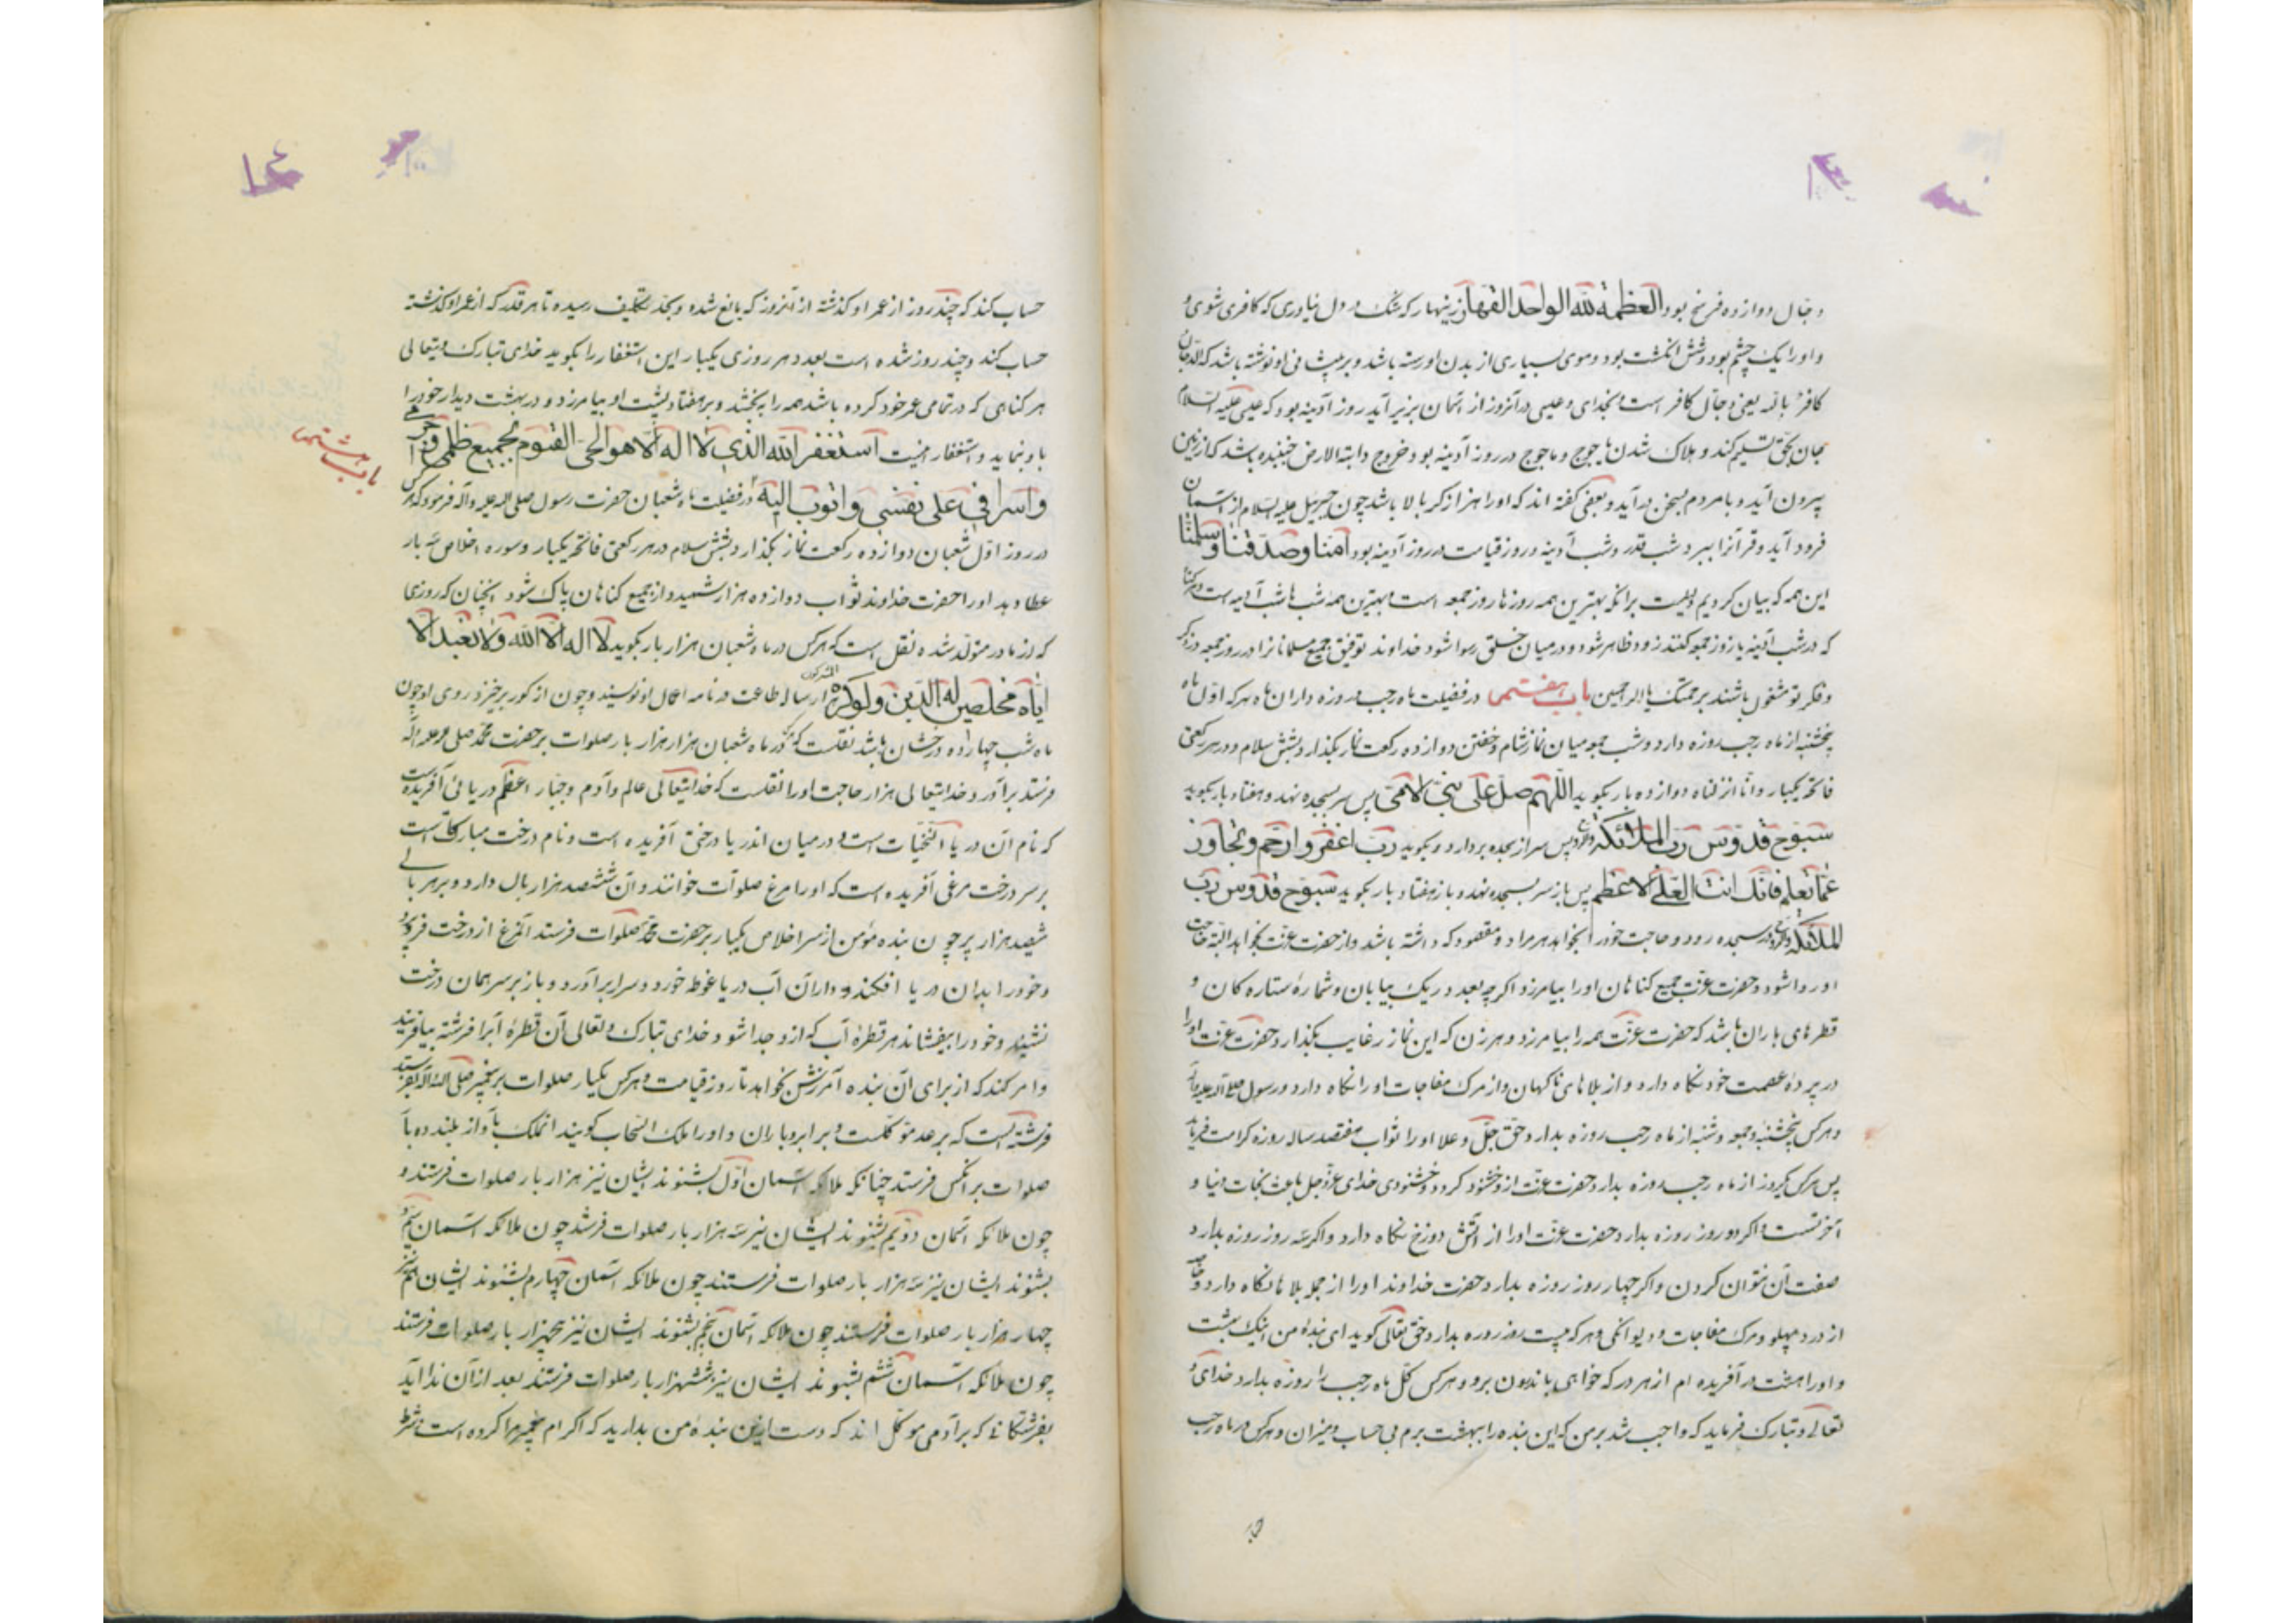 دجال دوازده فرسخ بود العظمة لله الواحد القهار زینهار که شک در دل نیاوری که کافری شوی و
و او را یک چشم بود و شش انگشت بود و موی بسیاری از بدن او رسته باشد و بر پیشانی او نوشته باشد که الدجال
کافر بالله یعنی دجال کافر است بخدای و عیسی در آنروز از آسمان بزیر آید روز آدینه بود که عیسی علیه السلام
جان بحق تسلیم کند و هلاک شدن یاجوج و ماجوج در روز آدینه بود و خروج دابة الارض جنبنده باشد که از زمین
بیرون آید و با مردم بسخن درآید و بعضی گفته اند که او را هزار گز بالا باشد چون جبرئیل علیه السلام از آسمان
فرود آید و قرآنرا ببرد شب قدر و شب آدینه و روز قیامت در روز آدینه بود آمنا وصدقنا وسلمنا
این همه که بیان کردیم دلیلست برانکه بهترین همه روزها روز جمعه است و بهترین همه شب ها شب آدینه است و هر گناه
که در شب آدینه یا روز جمعه کنند زود ظاهر شود و در میان خلق رسوا شود خداوند توفیق جمیع مسلمانانرا در روز جمعه در ذکر
و فکر تو مشغول باشند برحمتک یا ارحم الراحمین باب هفتم در فضیلت ماه رجب و روزه داران ماه هر که اول ماه
پنجشنبه از ماه رجب روزه دارد و شب جمعه میان نماز شام و خفتن دوازده رکعت نماز بگذارد بشش سلام و در هر رکعتی
فاتحه یکبار و انا انزلناه دوازده بار بگوید اللهم صل علی نبی الامی پس سر بسجده نهد و هفتاد بار بگوید
سبوح قدوس رب الملائکة والروح پس سر از سجده بردارد و بگوید رب اغفر وارحم وتجاوز
عما تعلم فانک انت العلی الاعظم پس باز سر بسجده نهد و باز هفتاد بار بگوید سبوح قدوس رب
الملائکة والروح در سجده رود و حاجت خود را بخواهد هر مراد و مقصود که داشته باشد و از حضرت عزت بخواهد البته حاجت
او روا شود و حضرت عزت جمیع گناهان او را بیامرزد اگرچه بعدد ریک بیابان و شمارهٔ ستاره کان و
قطرهای باران باشد که حضرت عزت همه را بیامرزد و هر زن که این نماز رغایب بگذارد حضرت عزت او را
در پردهٔ عصمت خود نگاه دارد و از بلاهای ناگهان و از مرگ مفاجات او را نگاه دارد و رسول
و هر کس پنجشنبه و جمعه و شنبه از ماه رجب روزه بدارد حق جل و علا او را ثواب هفتصد ساله روزه کرامت فرماید
پس هر کس یکروز از ماه رجب روزه بدارد حضرت عزت ازو خشنود گردد و خشنودی خدای عزوجل باعث نجات دنیا و
آخرتست و اگر دو روز روزه بدارد حضرت عزت او را از آتش دوزخ نگاه دارد و اگر سه روز روزه بدارد
صفت آن نتوان کردن و اگر چهار روز روزه بدارد حضرت خداوند او را از جمله بلاها نگاه دارد
از درد پهلو و مرگ مفاجات و دیوانگی و هر که بیست روز روزه بدارد حق تعالی گوید ای بندهٔ من اینک بهشت
و او را هشت در آفریده ام از هر در که خواهی باندرون برو و هر کس کل ماه رجب را روزه بدارد خدای
تعالی و تبارک فرماید که واجب شد بر من که این بنده را ببهشت برم بی حساب و میزان و هر کس در ماه رجب
حساب کند که چند روز از عمر او گذشته از آنروز که بالغ شده و بحد تکلیف رسیده تا هر قدر که از عمر او گذشته
حساب کند و چند روز شده است بعدد هر روزی یکبار این استغفار را بگوید خدای تبارک و تعالی
هر گناهی که در تمامی عمر خود کرده باشد همه را ببخشد و بر هفتاد پشت او بیامرزد و در بهشت دیدار خود را
باو نماید و استغفار اینست استغفر الله الذی لا اله الا هو الحی القیوم بجمیع ظلمی وجرمی
واسرافی علی نفسی واتوب الیه در فضیلت ماه شعبان حضرت رسول صلی الله علیه وآله فرمود که هر کس
باب هشتم
در روز اول شعبان دوازده رکعت نماز بگذارد بشش سلام در هر رکعتی فاتحه یکبار و سوره اخلاص سه بار
عطا دهد او را حضرت خداوند ثواب دوازده هزار شهید و از جمیع گناهان پاک شود آنچنان که روزی
که از مادر متولد شده نقل است که هر کس در ماه شعبان هزار بار بگوید لا اله الا الله ولا نعبد الا
ایاه مخلصین له الدین ولو کره المشرکون هزار ساله طاعت در نامه اعمال او نویسند و چون از گور برخیزد روی او چون
ماه شب چهارده درخشان باشد نقلست که هر که در ماه شعبان هزار هزار بار صلوات بر حضرت محمد صلی الله علیه وآله
فرستد برآورد خدایتعالی هزار حاجت او را نقلست که خدایتعالی عالم و آدم و جبار اعظم دریائی آفریده است
که نام آن دریا التحیات است و در میان اندریا درختی آفریده است و نام درخت مبارکات است
بر سر درخت مرغی آفریده است که او را مرغ صلوات خوانند و آن ششصد هزار بال دارد و بر هر بالی
ششصد هزار پر چون بنده مؤمن از سر اخلاص یکبار بر حضرت محمد صلوات فرستد آنمرغ از درخت فرو پرد
و خود را بدان دریا افکند و در آن آب دریا غوطه خورد و سر برآورد و باز بر سر همان درخت
نشیند و خود را بیفشاند هر قطرهٔ آب که ازو جدا شود خدای تبارک و تعالی آن قطرهٔ آبرا فرشته بیافریند
و امر کند که از برای آن بنده آمرزش بخواهد تا روز قیامت و هر کس یکبار صلوات بر پیغمبر صلی الله علیه وآله بفرستد
فرشته است که بر عد موکلست و برابر و باران و او را ملک السحاب گویند آنملک بآواز بلند ده بار
صلوات بر آنکس فرستد چنانکه ملائکه آسمان اول بشنوند ایشان نیز هزار بار صلوات فرستند و
چون ملائکه آسمان دویم بشنوند ایشان نیز سه هزار بار صلوات فرستند چون ملائکه آسمان سیم
بشنوند ایشان نیز سه هزار بار صلوات فرستند چون ملائکه آسمان چهارم بشنوند ایشان هم نیز
چهار هزار بار صلوات فرستند چون ملائکه آسمان پنجم بشنوند ایشان نیز پنجهزار بار صلوات فرستند
چون ملائکه آسمان ششم بشنوند ایشان نیز ششهزار بار صلوات فرستند بعد از آن ندا آید
بفرشتگانی که بر آدمی موکل اند که دست از این بندهٔ من بدارید که اکرام پیغمبر مرا کرده است